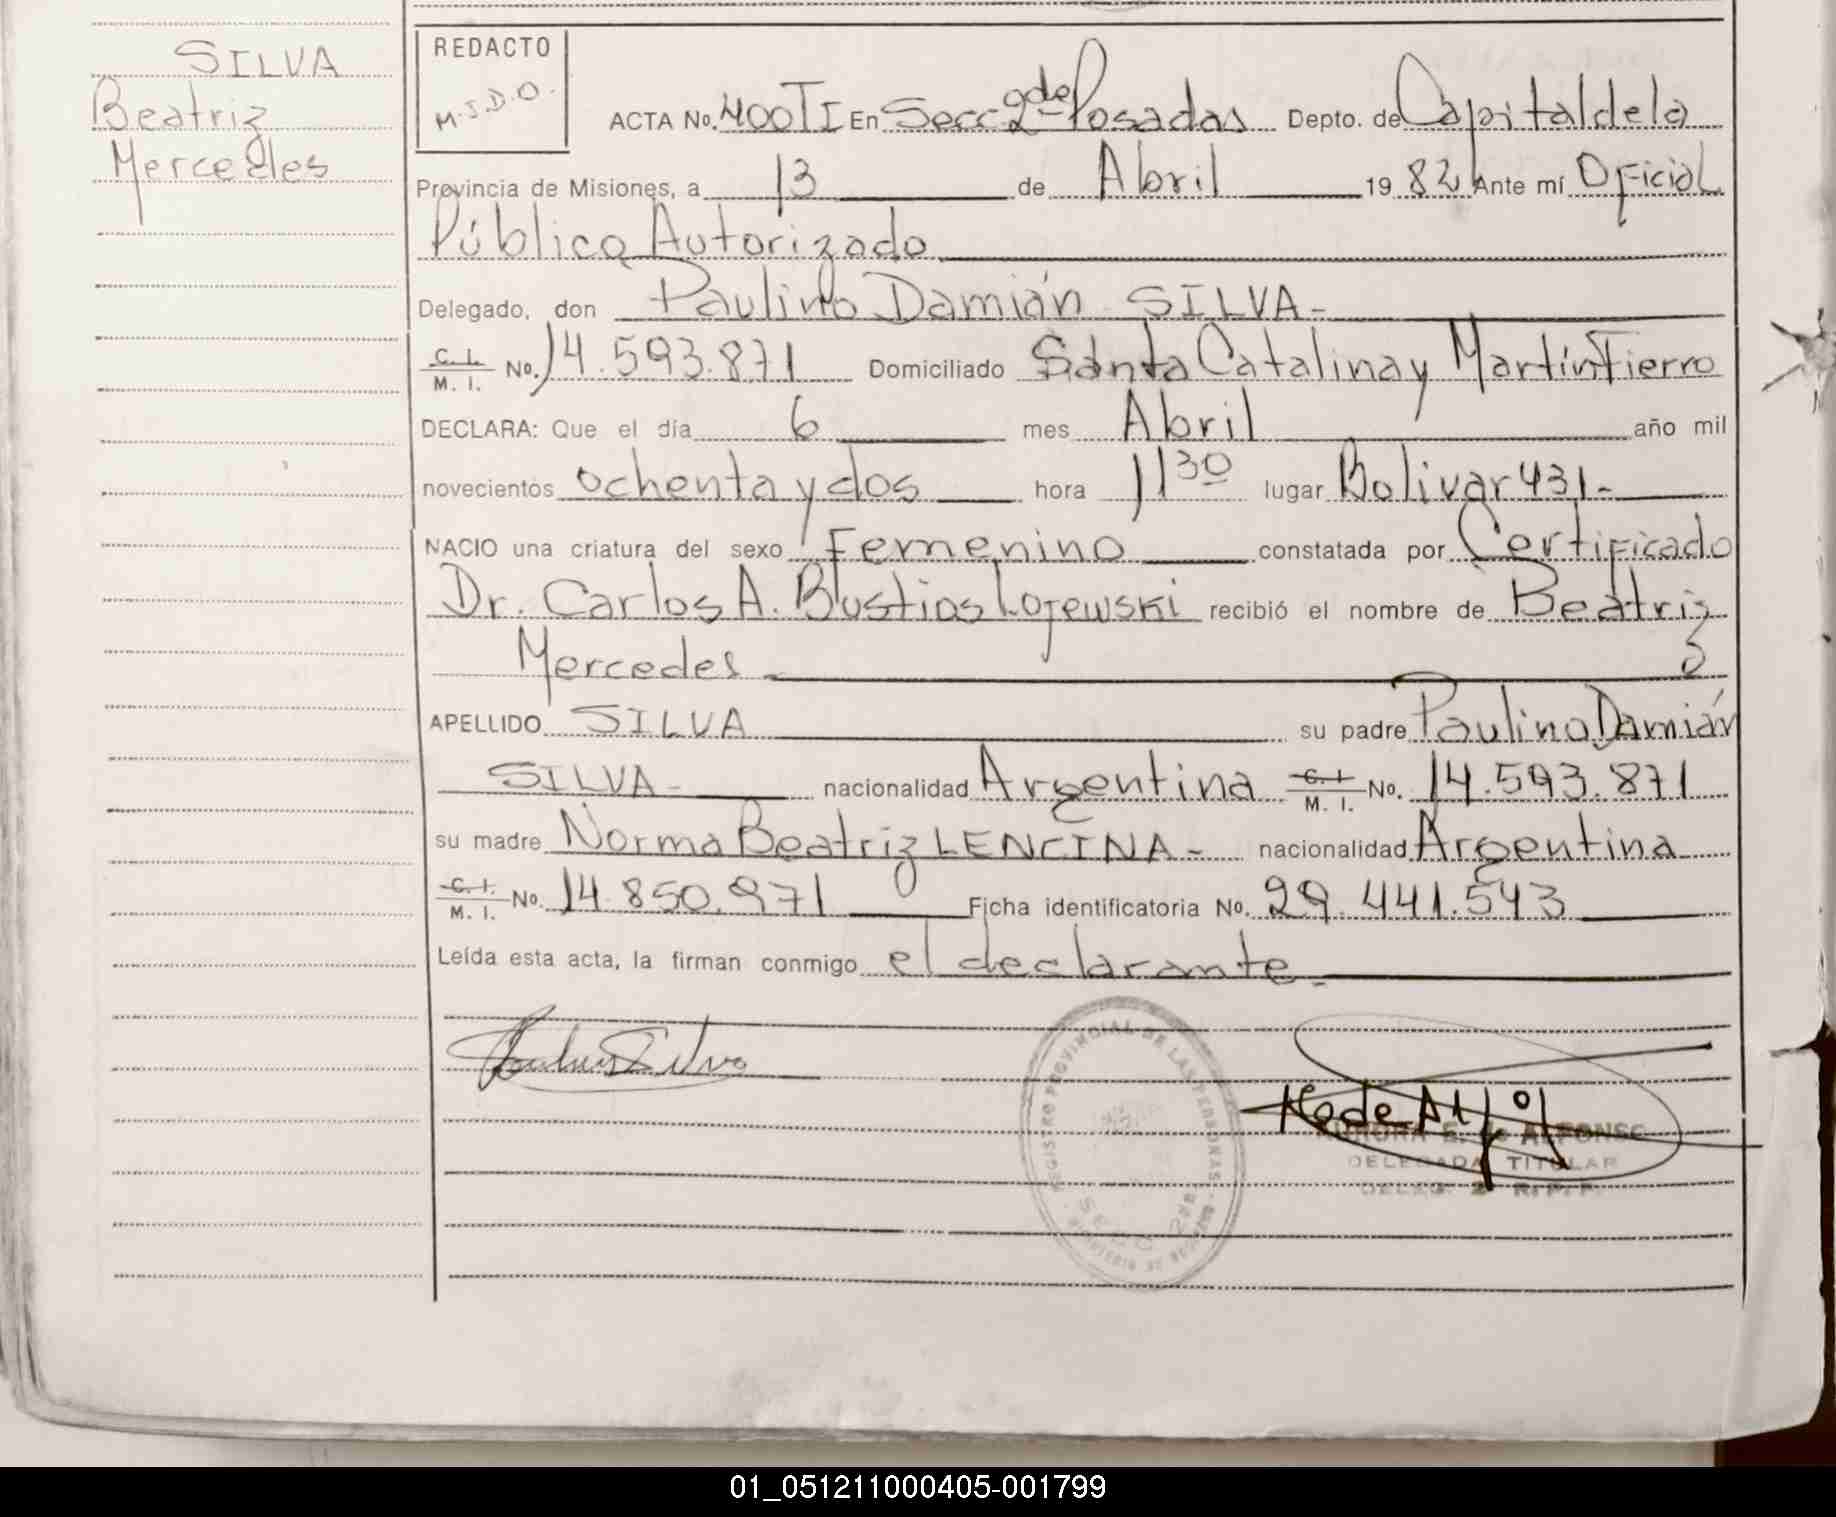 SILVA
Beatriz
Mercedes
REDACTO
M.J.D.O.
ACTA No. 400TI En Secc 2da de Posadas Depto. de Capital de la
Provincia de Misiones, a 13 de Abril 19 82 Ante mí Oficial
Público Autorizado
Delegado, don Paulino Damián SILVA-
C. I. M. I. No. 14.593.871 Domiciliado Santa Catalina y Martín Fierro
DECLARA: Que el día 6 mes Abril año mil
novecientos ochenta y dos hora 11 30 lugar Bolivar 431-
NACIO una criatura del sexo Femenino constatada por Certificado
Dr. Carlos A. Bustios Lojewski recibió el nombre de Beatriz
Mercedes -
APELLIDO SILVA su padre Paulino Damián
SILVA- nacionalidad Argentina C. I. M. I. No. 14.593.871
su madre Norma Beatriz LENCINA- nacionalidad Argentina
C. I. M. I. No. 14.850.971 Ficha identificatoria No. 29.441.543
Leída esta acta, la firman conmigo el declarante-
REGISTRO PROVINCIAL DE LAS PERSONAS
AURORA E. de ALFONSO
DELEGADA TITULAR
DELEG. 2 R.P.P.
01_051211000405-001799